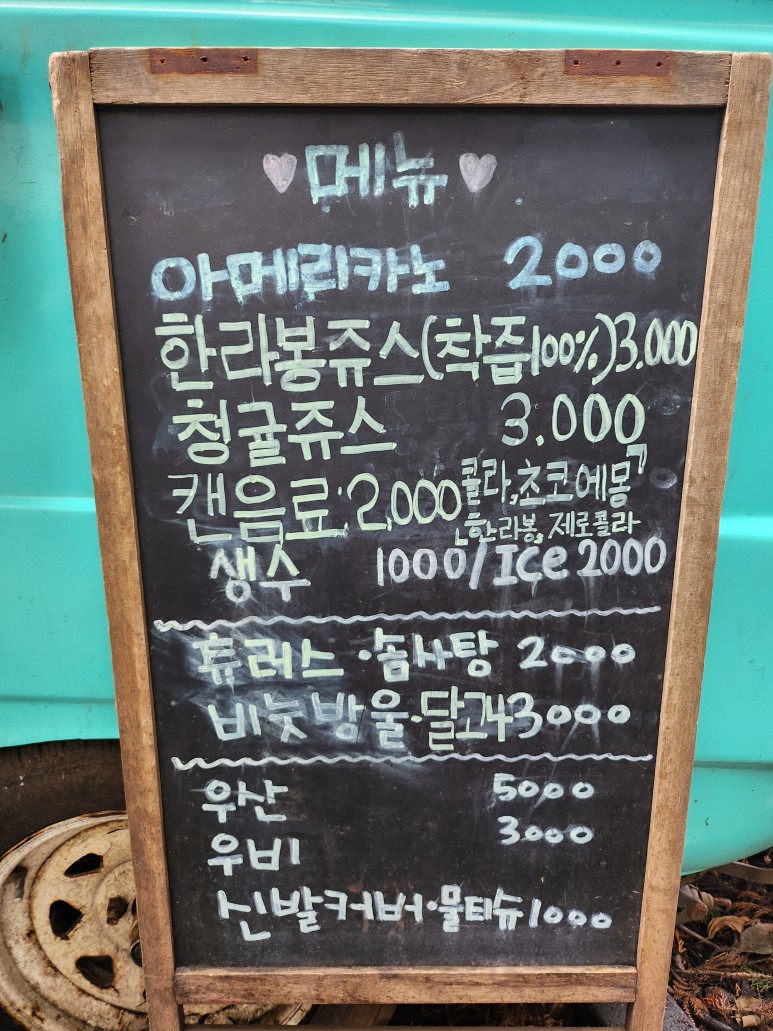 ♥메뉴♥
아메리카노 2000
한라봉쥬스(착즙100%)3.000
청귤쥬스 3.000
캔음료:2,000 콜라,초코에몽
한라봉,제로콜라
생수 1000/Ice 2000
츄러스·솜사탕 2000
비눗방울·달고나 3000
우산 5000
우비 3000
신발커버·물티슈 1000